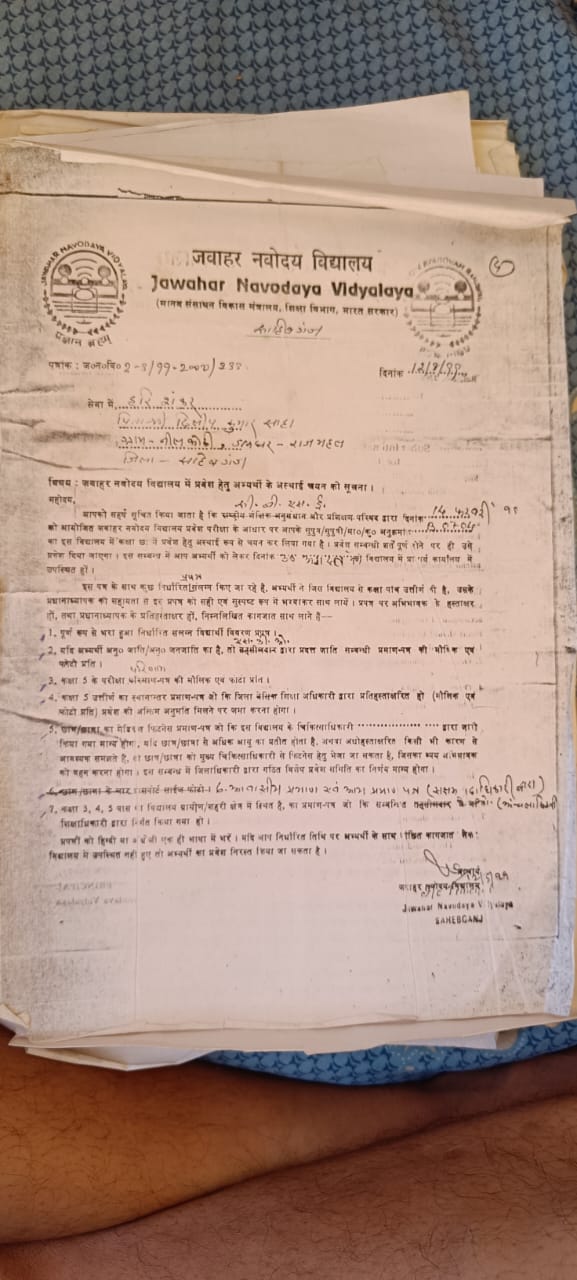 JAWAHAR NAVODAYA VIDYALAYA
प्रज्ञानं ब्रह्म
जवाहर नवोदय विद्यालय
Jawahar Navodaya Vidyalaya
(मानव संसाधन विकास मंत्रालय, शिक्षा विभाग, भारत सरकार)
साहिबगंज
पत्रांक : ज०न०वि०
दिनांक
सेवा में, हरि शंकर
पिता श्री दिलीप कुमार साहा
ग्राम- नीलकोठी, डाकघर - राजमहल
जिला - साहेबगंज
विषय : जवाहर नवोदय विद्यालय में प्रवेश हेतु अभ्यर्थी के अस्थाई चयन की सूचना ।
महोदय,
सी. बी. एस. ई.
आपको सहर्ष सूचित किया जाता है कि राष्ट्रीय शैक्षिक अनुसंधान और प्रशिक्षण परिषद द्वारा दिनांक 14 फरवरी
को आयोजित जवाहर नवोदय विद्यालय प्रवेश परीक्षा के आधार पर आपके सुपुत्र/सुपुत्री/मा०/कु० अनुक्रमांक
का इस विद्यालय में कक्षा छः में प्रवेश हेतु अस्थाई रूप से चयन कर लिया गया है । प्रवेश सम्बन्धी शर्तें पूर्ण होने पर ही उसे
प्रवेश दिया जाएगा । इस सम्बन्ध में आप अभ्यर्थी को लेकर दिनांक विद्यालय में प्राचार्य कार्यालय में
उपस्थित हों ।
प्रपत्र
इस पत्र के साथ कुछ निर्धारित संलग्न किए जा रहे है, अभ्यर्थी ने जिस विद्यालय से कक्षा पांच उत्तीर्ण की है, उसके
प्रधानाध्यापक की सहायता से इस प्रपत्र को सही एवं सुस्पष्ट रूप में भरवाकर साथ लायें । प्रपत्र पर अभिभावक के हस्ताक्षर
हों, तथा प्रधानाध्यापक के प्रतिहस्ताक्षर हों, निम्नलिखित कागजात साथ लाने हैं—
1. पूर्ण रूप से भरा हुआ निर्धारित संलग्न विद्यार्थी विवरण प्रपत्र ।
एस. डी. ओ.
2. यदि अभ्यर्थी अनु० जाति/अनु० जनजाति का है, तो तहसीलदार द्वारा प्रदत्त जाति सम्बन्धी प्रमाण-पत्र की मौलिक एवं
फोटो प्रति ।
परिणाम
3. कक्षा 5 के परीक्षा परिमाण-पत्र की मौलिक एवं फोटो प्रति ।
4. कक्षा 5 उत्तीर्ण का स्थानान्तर प्रमाण-पत्र जो कि जिला बेसिक शिक्षा अधिकारी द्वारा प्रतिहस्ताक्षरित हो (मौलिक एवं
फोटो प्रति) प्रवेश की अन्तिम अनुमति मिलने पर जमा करना होगा ।
5. छात्र/छात्रा का मेडिकल फिटनेस प्रमाण-पत्र जो कि इस विद्यालय के चिकित्साधिकारी .................. द्वारा जारी
किया गया मान्य होगा, यदि छात्र/छात्रा से अधिक आयु का प्रतीत होता है, अथवा अधोहस्ताक्षरित किसी भी कारण से
आवश्यक समझते है, तो छात्र/छात्रा को मुख्य चिकित्साधिकारी से फिटनेस हेतु भेजा जा सकता है, जिसका व्यय अभिभावक
को वहन करना होगा । इस सम्बन्ध में जिलाधिकारी द्वारा गठित विशेष प्रवेश समिति का निर्णय मान्य होगा ।
6. छात्र/छात्रा के चार पासपोर्ट साईज फोटो । 6. आवासीय प्रमाण एवं आय प्रमाण पत्र (सक्षम पदाधिकारी द्वारा)
7. कक्षा 3, 4, 5 पास का विद्यालय ग्रामीण/शहरी क्षेत्र में स्थित है, का प्रमाण-पत्र जो कि सम्बन्धित तहसीलदार
शिक्षाधिकारी द्वारा निर्गत किया गया हो ।
प्रपत्रों को हिन्दी या अंग्रेजी एक ही भाषा में भरें । यदि आप निर्धारित तिथि पर अभ्यर्थी के साथ वांछित कागजात लेकर
विद्यालय में उपस्थित नहीं हुए तो अभ्यर्थी का प्रवेश निरस्त किया जा सकता है ।
प्राचार्य
जवाहर नवोदय विद्यालय
Jawahar Navodaya Vidyalaya
SAHEBGANJ